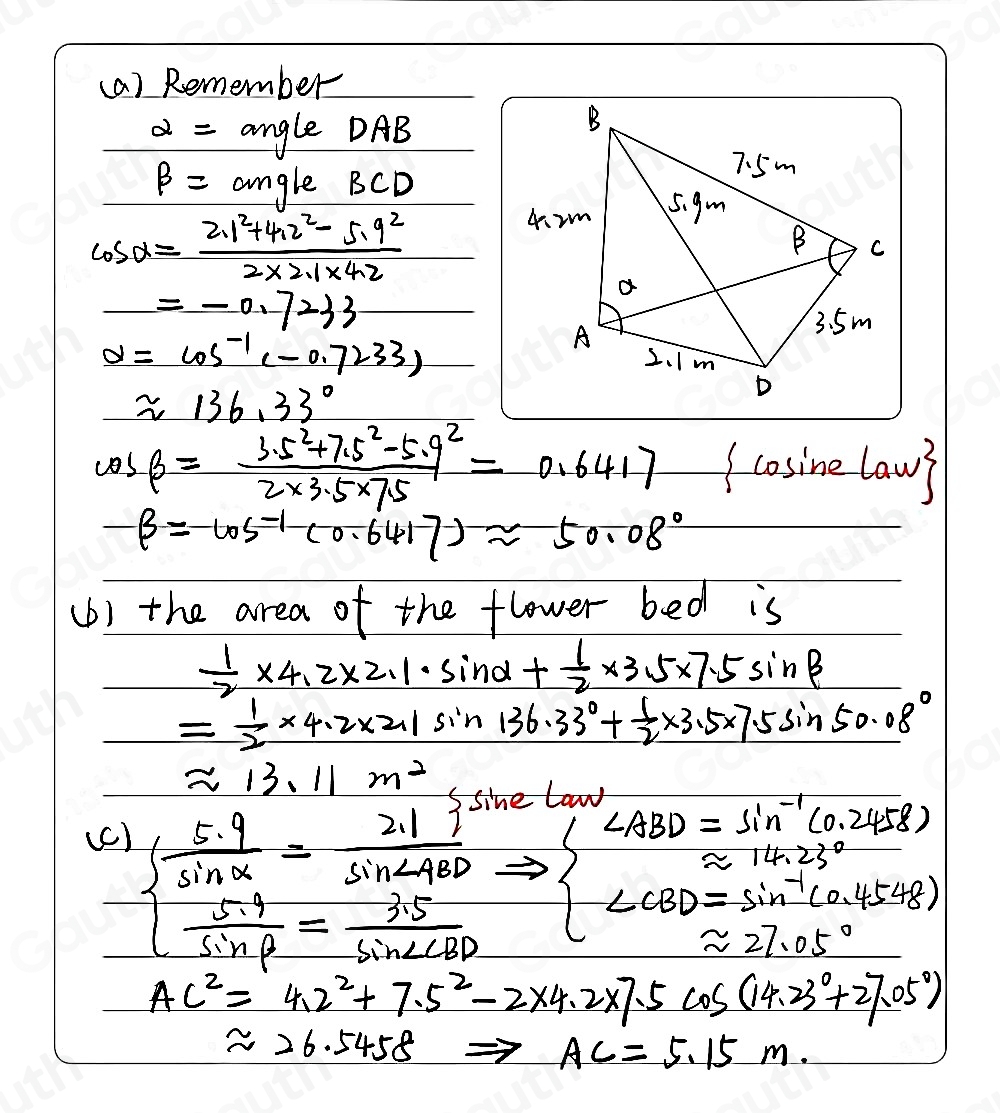 (a) Remember
α = angle DAB
β = angle BCD
cosα = (2.1²+4.2²-5.9²)/(2×2.1×4.2)
= -0.7233
α = cos⁻¹(-0.7233)
≈ 136.33°
B
7.5m
5.9m
4.2m
β
C
α
A
3.5m
2.1m
D
cosβ = (3.5²+7.5²-5.9²)/(2×3.5×7.5) = 0.6417 {cosine law}
β = cos⁻¹(0.6417) ≈ 50.08°
(b) the area of the flower bed is
1/2 ×4.2×2.1·sinα + 1/2 ×3.5×7.5 sinβ
= 1/2 ×4.2×2.1 sin 136.33° + 1/2 ×3.5×7.5 sin 50.08°
≈ 13.11 m²
{sine Law
(c) { 5.9/sinα = 2.1/sin∠ABD ⇒ { ∠ABD = sin⁻¹(0.2458)
≈ 14.23°
5.9/sinβ = 3.5/sin∠CBD
∠CBD = sin⁻¹(0.4548)
≈ 27.05°
AC² = 4.2² + 7.5² - 2×4.2×7.5 cos(14.23°+27.05°)
≈ 26.5458 ⇒ AC = 5.15 m.
Gauth